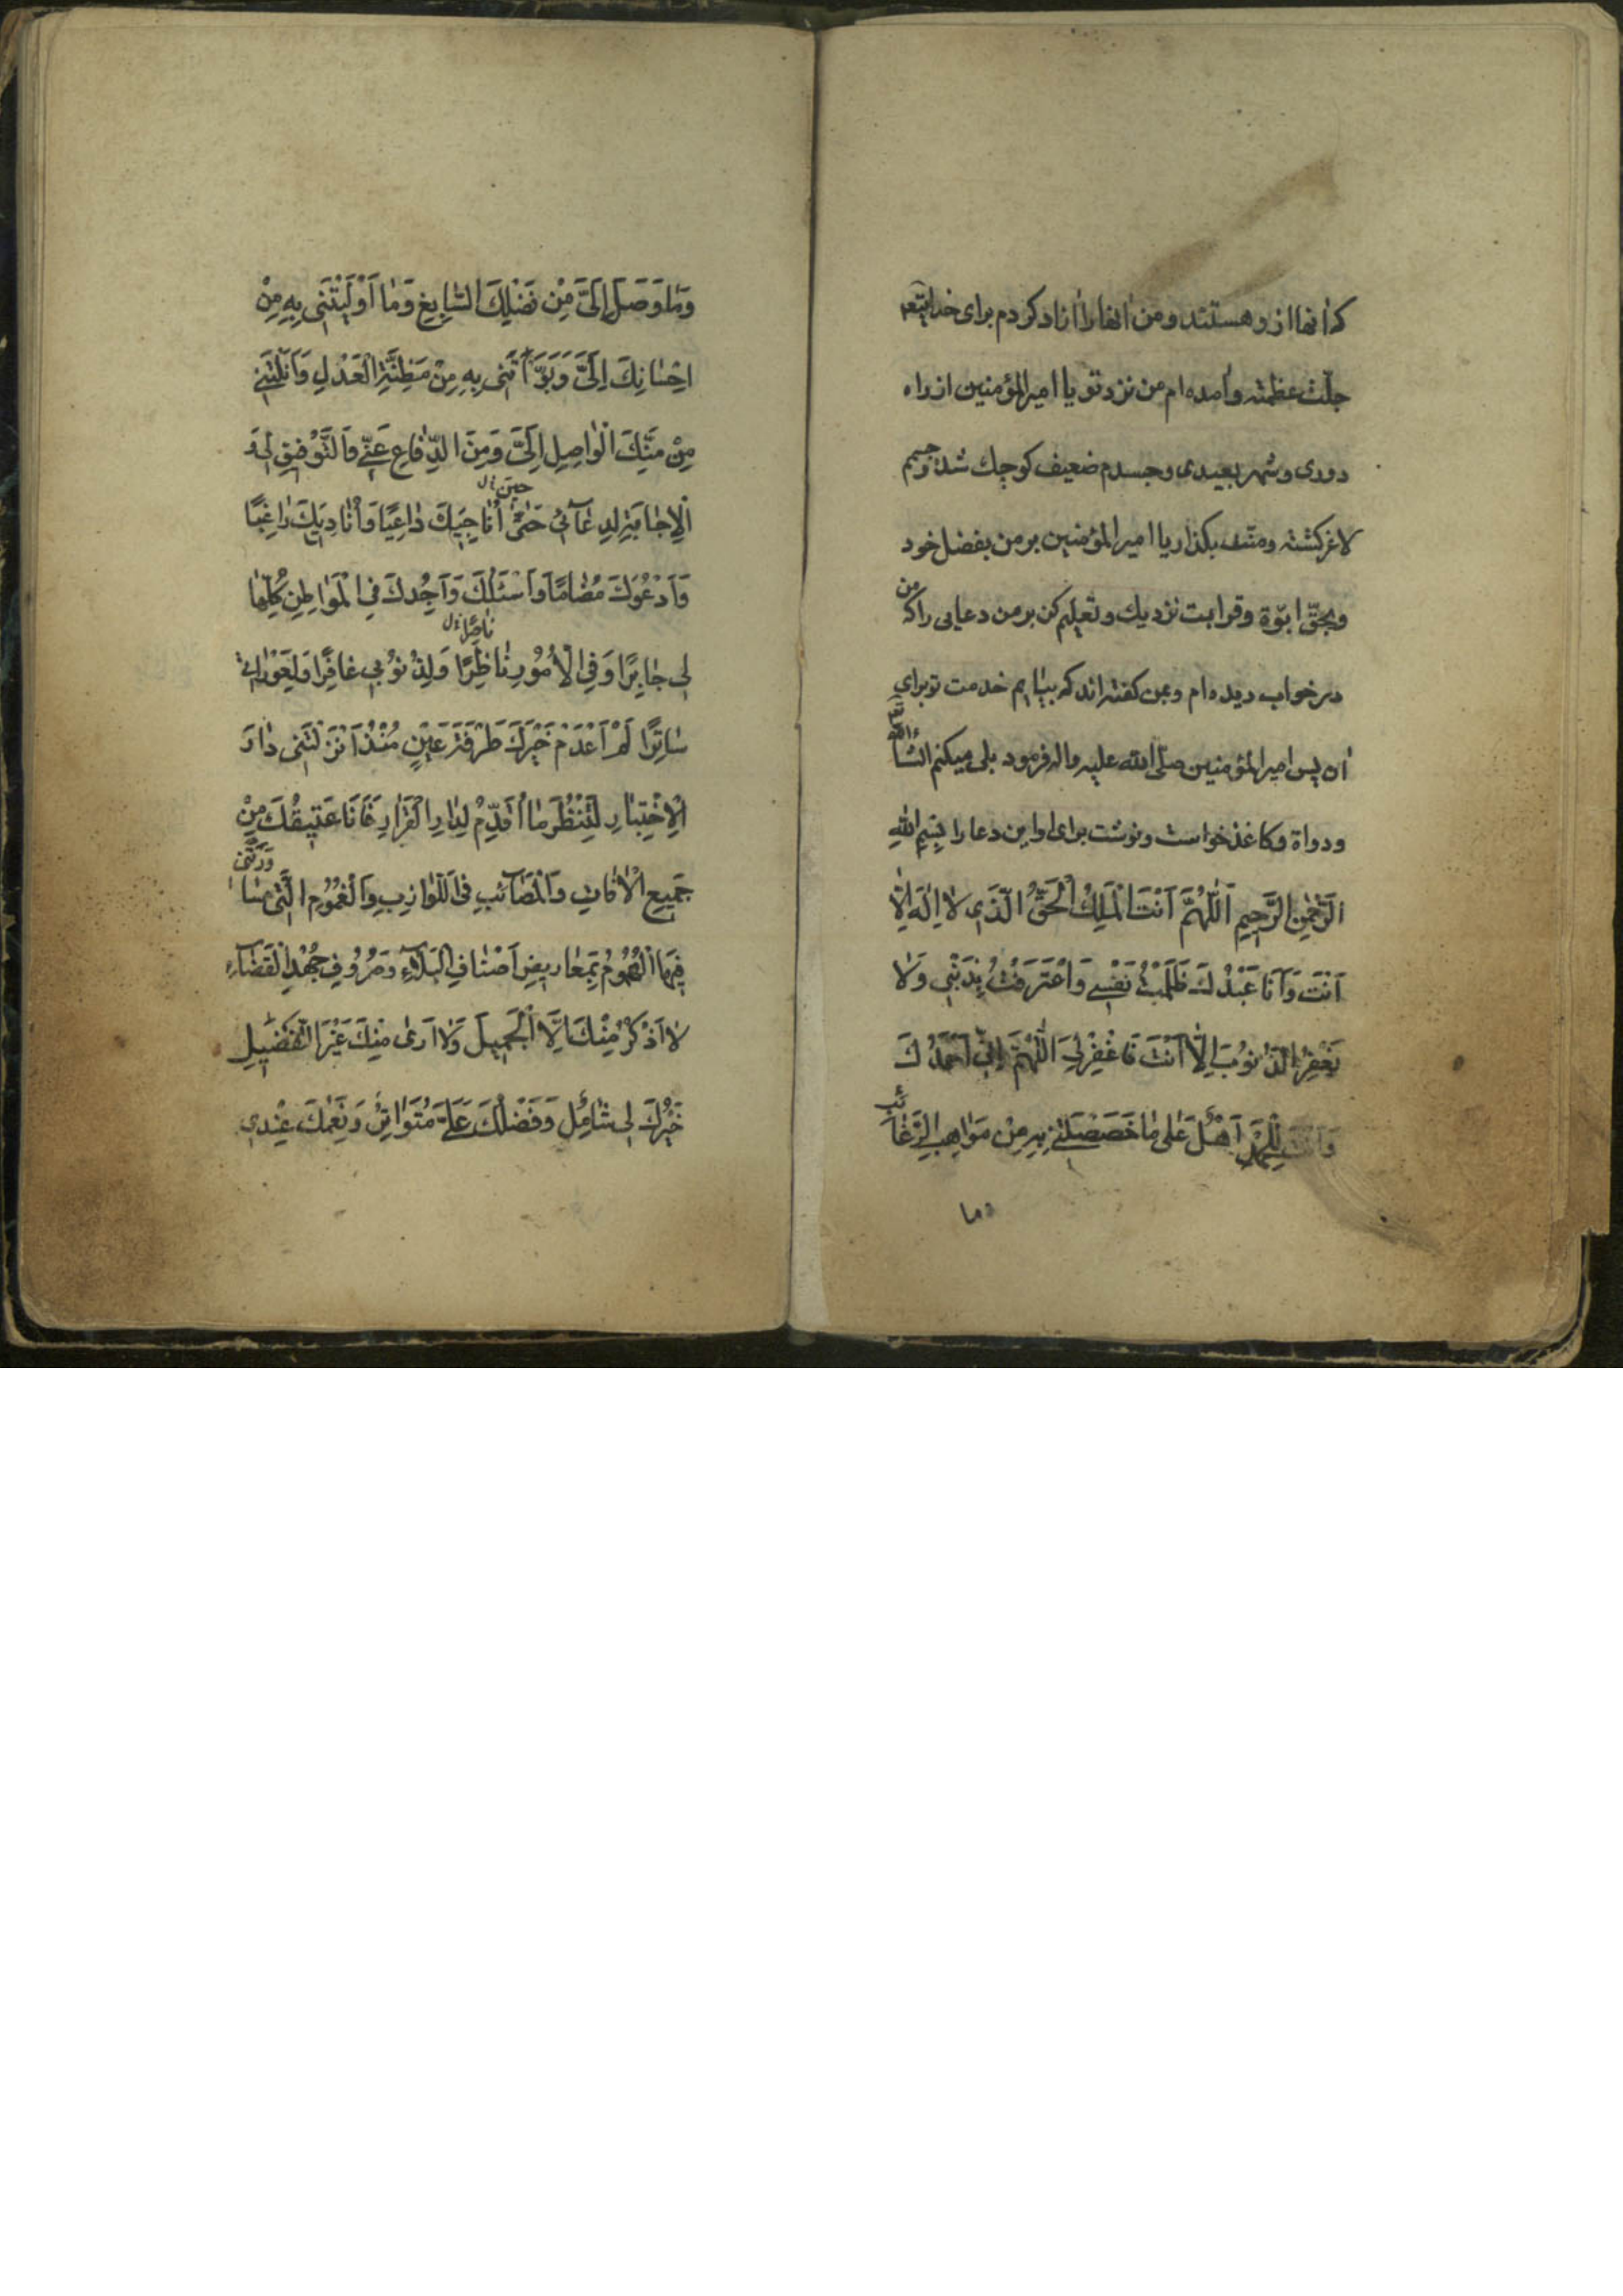 که انها از و هستند و من انها را ازاد کردم برای خدایتعه
جلّت عظمته و امده‌ام من نزد تو یا امیرالمؤمنین از راه
دوری و شهر بعیدی و جسدم ضعیف کوچک شده و جسم
لاغر کشته و منت بکذار یا امیرالمؤمنین بر من بفضل خود
و بحقّ ابوّة و قرابت نزدیک و تعلیم کن بر من دعایی را که من
در خواب دیده‌ام و بمن کفته‌اند که بیایم خدمت تو برای
ان پس امیرالمؤمنین صلّی الله علیه واله فرمود بلی میکنم انشاءالله
و دواة و کاغذ خواست و نوشت برای او این دعا را بِسْمِ اللهِ
الرَّحْمٰنِ الرَّحِیمِ اَللّٰهُمَّ اَنْتَ الْمَلِكُ الْحَقُّ الَّذِی لَا اِلٰهَ اِلَّا
اَنْتَ وَ اَنَا عَبْدُكَ ظَلَمْتُ نَفْسِی وَ اعْتَرَفْتُ بِذَنْبِی وَ لَا
یَغْفِرُ الذُّنُوبَ اِلَّا اَنْتَ فَاغْفِرْ لِیَ اَللّٰهُمَّ اِنِّی اَحْمَدُكَ
وَ اَنْتَ لِلْحَمْدِ اَهْلٌ عَلٰی مَا خَصَصْتَنِی بِهِ مِنْ مَوَاهِبِ الرَّغَائِبِ
وما
وَمَا وَصَلَ اِلَیَّ مِنْ فَضْلِكَ السَّابِغِ وَمَا اَوْلَیْتَنِی بِهِ مِنْ
اِحْسَانِكَ اِلَیَّ وَ بَوَّأْتَنِی بِهِ مِنْ مَظِنَّةِ الْعَدْلِ وَ اَنَلْتَنِی
مِنْ مَنِّكَ الْوَاصِلِ اِلَیَّ وَ مِنَ الدِّفَاعِ عَنِّی وَ التَّوْفِیقِ لِی وَ
الْاِجَابَةِ لِدُعَائِی حَتّٰی حین خ‌ل اُنَاجِیكَ دَاعِیًا وَ اُنَادِیكَ رَاغِبًا
وَ اَدْعُوَكَ مُضَامًا وَ اَسْئَلُكَ وَ اَجِدُكَ فِی الْمَوَاطِنِ كُلِّهَا
لِی جَابِرًا وَ فِی الْاُمُورِ نَاظِرًا ناصرا خ‌ل وَ لِذُنُوبِی غَافِرًا وَ لِعَوْرَاتِی
سَاتِرًا لَمْ اَعْدَمْ خَیْرَكَ طَرْفَةَ عَیْنٍ مُنْذُ اَنْزَلْتَنِی دَارَ
الْاِخْتِبَارِ لِتَنْظُرَ مَا اُقَدِّمُ لِدَارِ الْقَرَارِ فَاَنَا عَتِیقُكَ مِنْ
جَمِیعِ الْاٰفَاتِ وَ الْمَصَائِبِ فِی اللَّوَازِبِ وَ الْغُمُومِ الَّتِی سَاوَرَتْنِی
فِیهَا الْهُمُومُ بِمَعَارِیضِ اَصْنَافِ الْبَلَاءِ وَ صُرُوفِ جُهْدِ الْقَضَاءِ
لَا اَذْكُرُ مِنْكَ اِلَّا الْجَمِیلَ وَ لَا اَرٰی مِنْكَ غَیْرَ التَّفْضِیلِ
خَیْرُكَ لِی شَامِلٌ وَ فَضْلُكَ عَلَیَّ مُتَوَاتِرٌ وَ نِعَمُكَ عِنْدِی